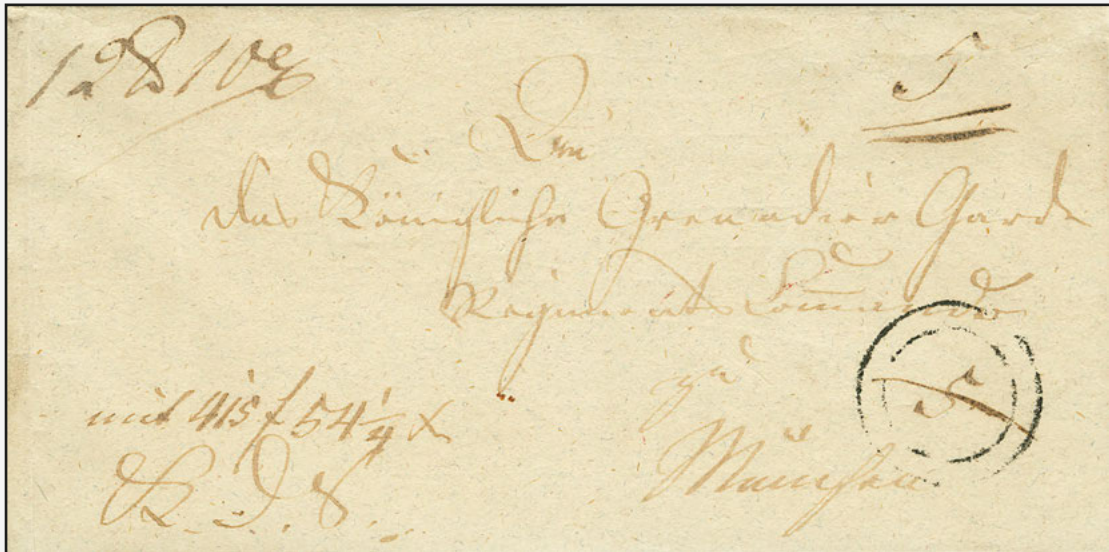 5
An
das Königliche Grenadier Garde
Regiments Commando
zu
München
5
mit 415 f 54 1/4 x
K. D. S.